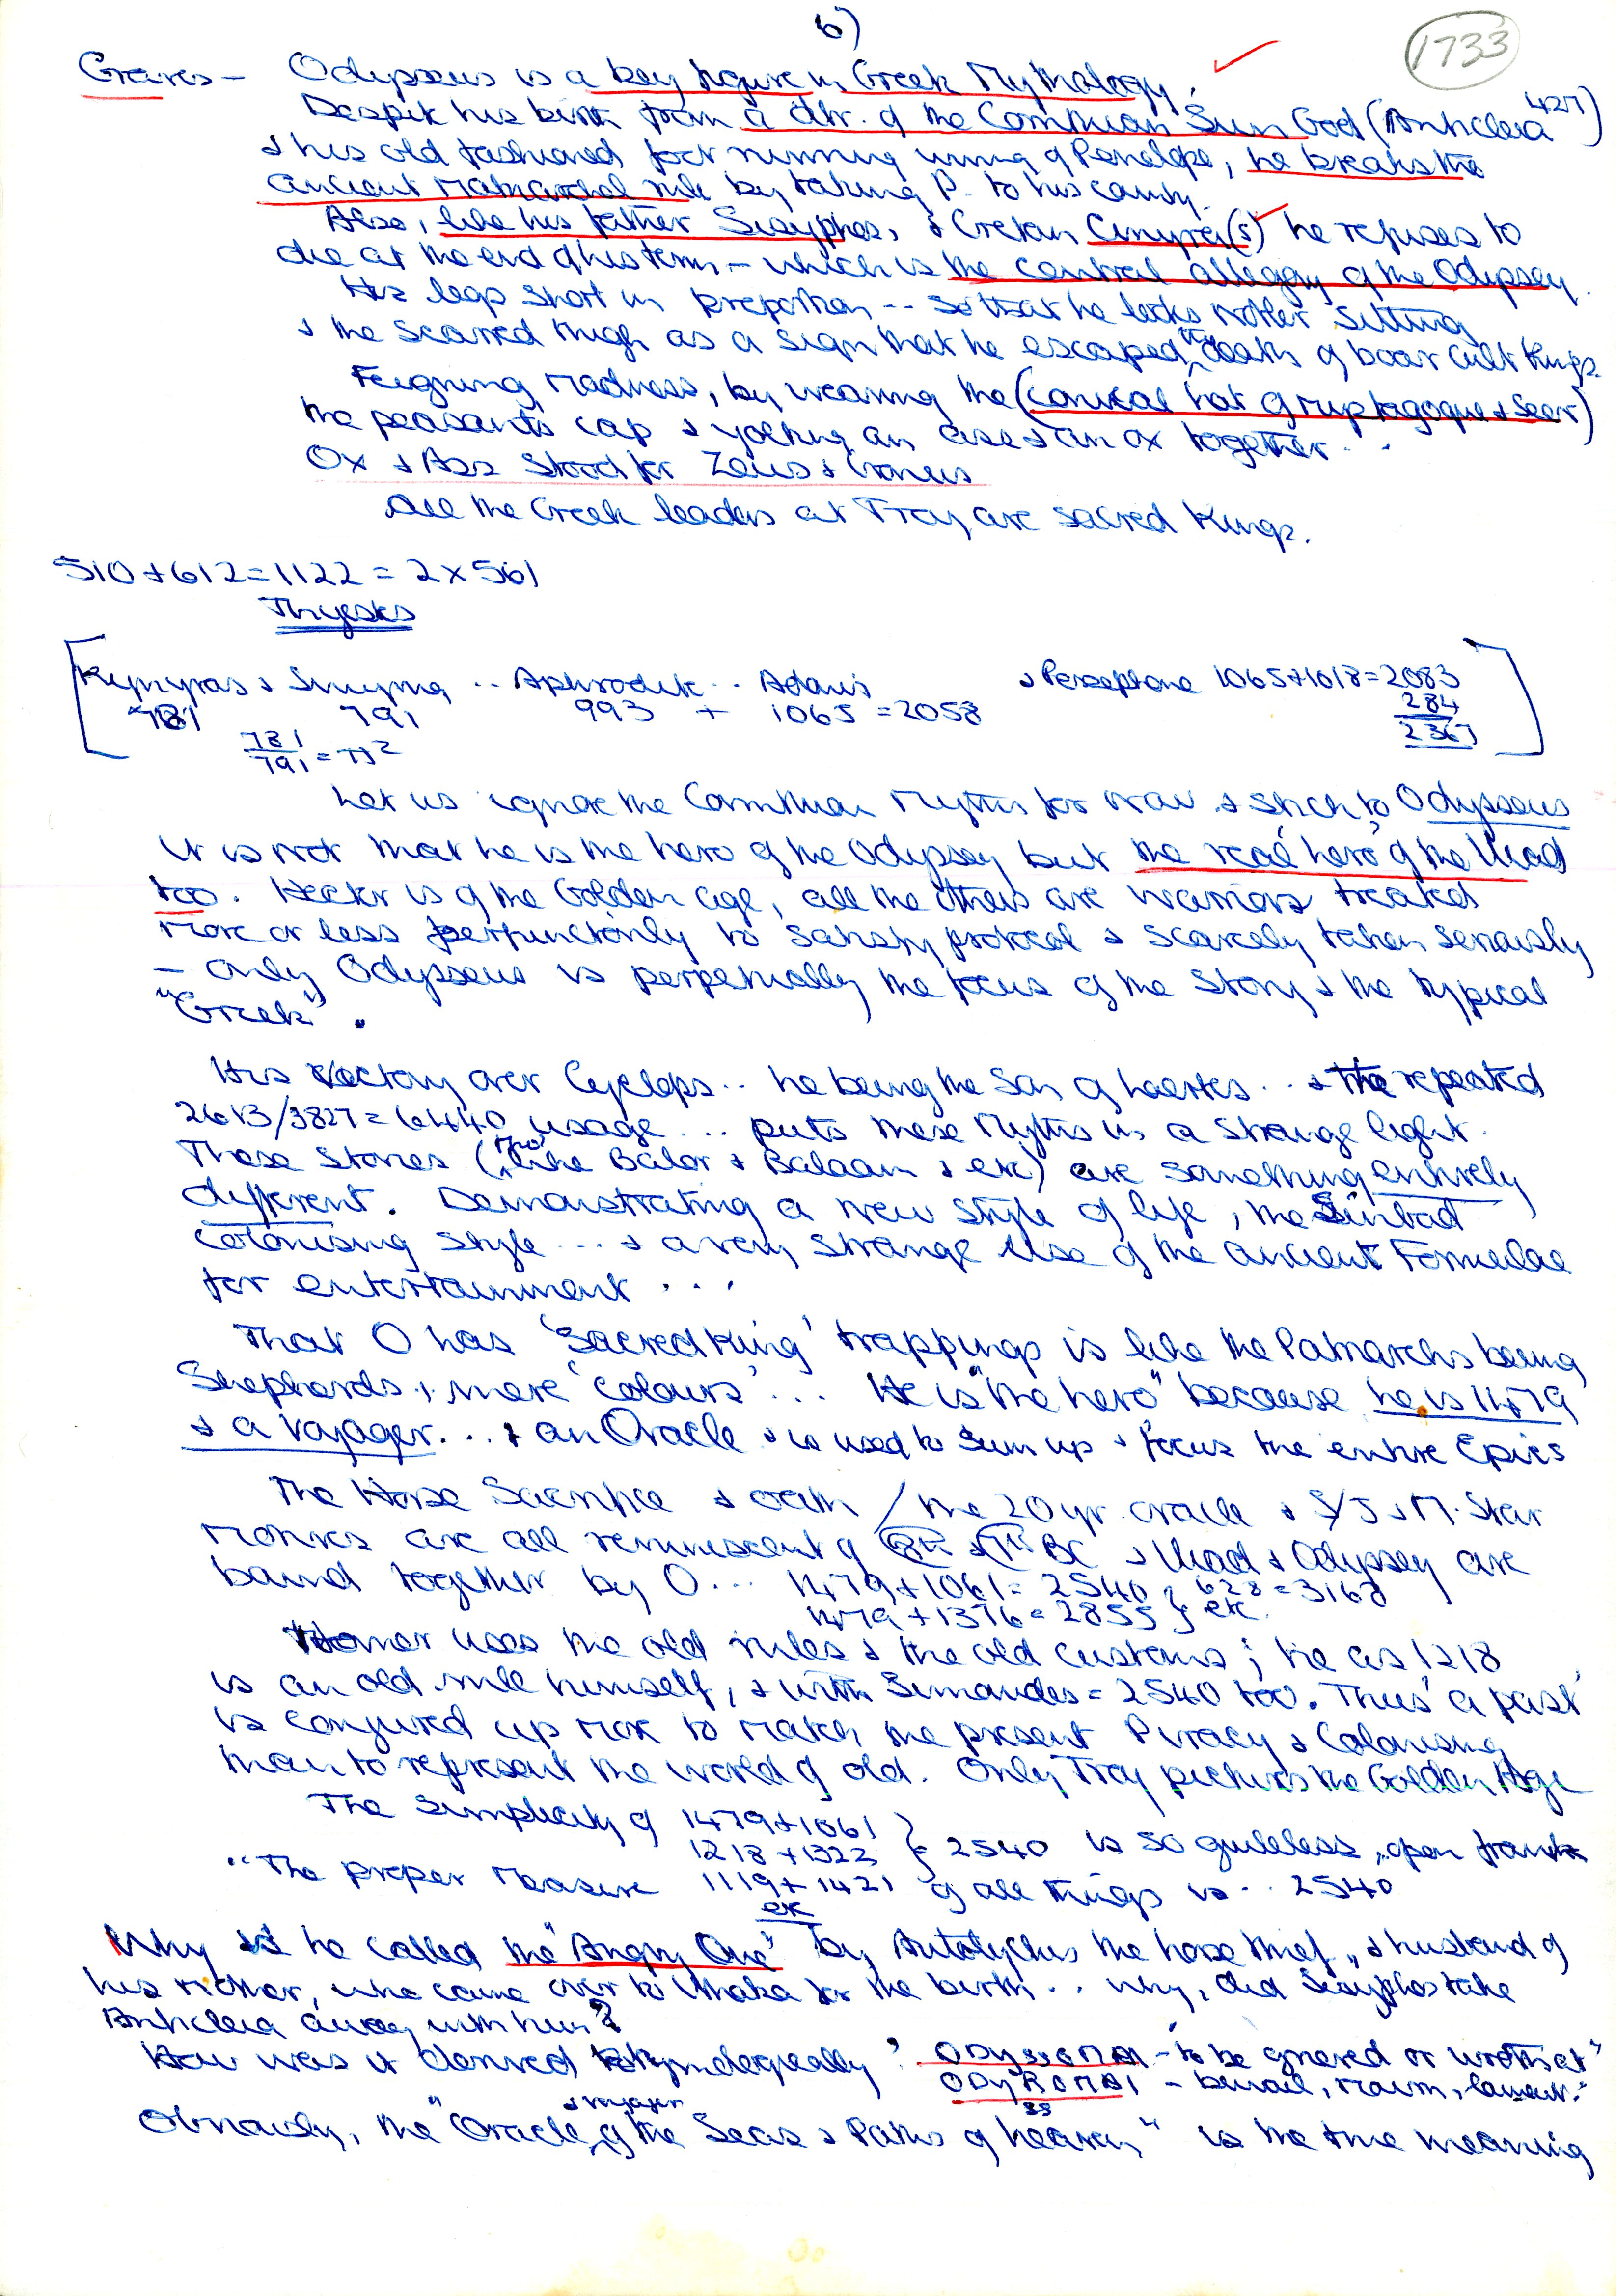 6)
1733
Graves – Odysseus is a key figure in Greek Mythology!
Despite his birth from a dtr. of the Corinthian Sun God (Anticleia 427)
& his old fashioned foot running wining of Penelope, he breaks the
ancient matriarchal rule by taking P. to his county.
Also, like his father Sisyphos, & Cretan Cinyra(s) he refuses to
die at the end of his term – which is the central allegory of the Odyssey.
His legs short in proportion -- so that he looks nobler sitting
& the scarred thigh as a sign that he escaped the death of boar cult kings
Feigning madness, by wearing the (conical hat of mystagogue & seer)
the peasants cap & yoking an asse & an ox together. . .
Ox & Ass stood for Zeus & Cronus
All the Greek leaders at Troy are sacred kings.
510 + 612 = 1122 = 2 x 561
Thyestes
Kynyras & Smyrna .. Aphrodite .. Adonis & Persephone 1065+1018=2083
781 791 993 + 1065 = 2058 284
781/791 = 2367
Let us ignore the Corinthian Myths for now & stick to Odysseus
It is not that he is the hero of the Odyssey but the 'real hero' of the Iliad
too. Hector is of the Golden age, all the others are warriors treated
more or less perfunctorily to satisfy protocol & scarcely taken seriously
– only Odysseus is perpetually the focus of the story & the typical
"Greek".
His victory over Cyclops .. he being the son of Laertes .. & the repeated
2613/3827 = 6440 usage ... puts these Myths in a strange light.
These stories (tho' like Balor & Balaam & etc) are something entirely
different. Demonstrating a new style of life, the Sinbad
colonising style ... & a very strange use of the ancient Formulae
for entertainment . . .
That O has 'Sacred King' trappings is like the Patriarchs being
Shepherds, mere 'colours' ... He is "the hero" because he is 1479
& a voyager. ... & an Oracle & is used to sum up & focus the entire Epics
The Horse Sacrifice & oath / the 20 yr. oracle & S/J & M. Star
motives are all reminiscent of BC & Iliad & Odyssey are
bound together by O ... 1479 + 1061 = 2540 } 628 = 3168
1479 + 1376 = 2855 } etc.
Homer uses the old rules & the old customs; he as 1218
is an old rule himself, & with Simonides = 2540 too. Thus 'a past'
is conjured up more to match the present Piracy & Colonising
than to represent the world of old. Only Troy pictures the Golden Age
The simplicity of 1479 + 1061
1218 + 1322 } 2540 is so guileless, open frank
"The proper measure 1119 + 1421 of all things is .. 2540
etc
Why is he called the "Angry One" by Autolychus the horse thief, & husband of
his mother, who came over to Ithaka for the birth .. why, did Sisyphos take
Anticleia away with him?
How was it derived etymologically? ODYSSOMAI – "to be grieved or wroth at"
ODYROMAI – bewail, mourn, lament."
& voyager
Obviously, the "Oracle of the Seas & Paths of heaven" is the true meaning